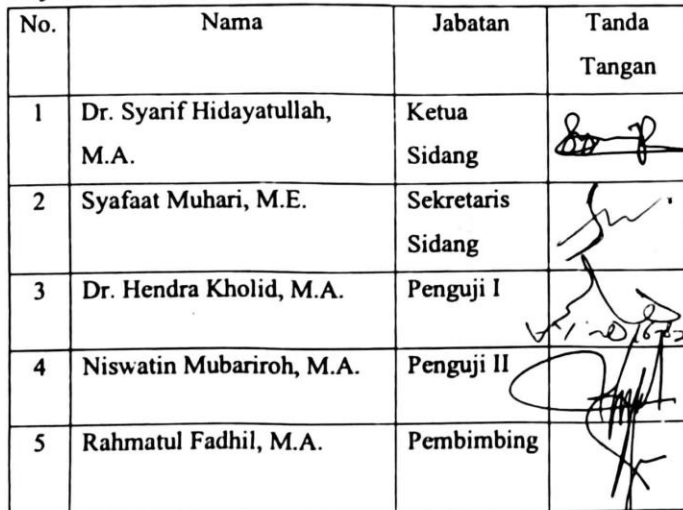 No. Nama Jabatan Tanda
Tangan
1 Dr. Syarif Hidayatullah, Ketua
M.A. Sidang
2 Syafaat Muhari, M.E. Sekretaris
Sidang
3 Dr. Hendra Kholid, M.A. Penguji I
4 Niswatin Mubariroh, M.A. Penguji II
5 Rahmatul Fadhil, M.A. Pembimbing